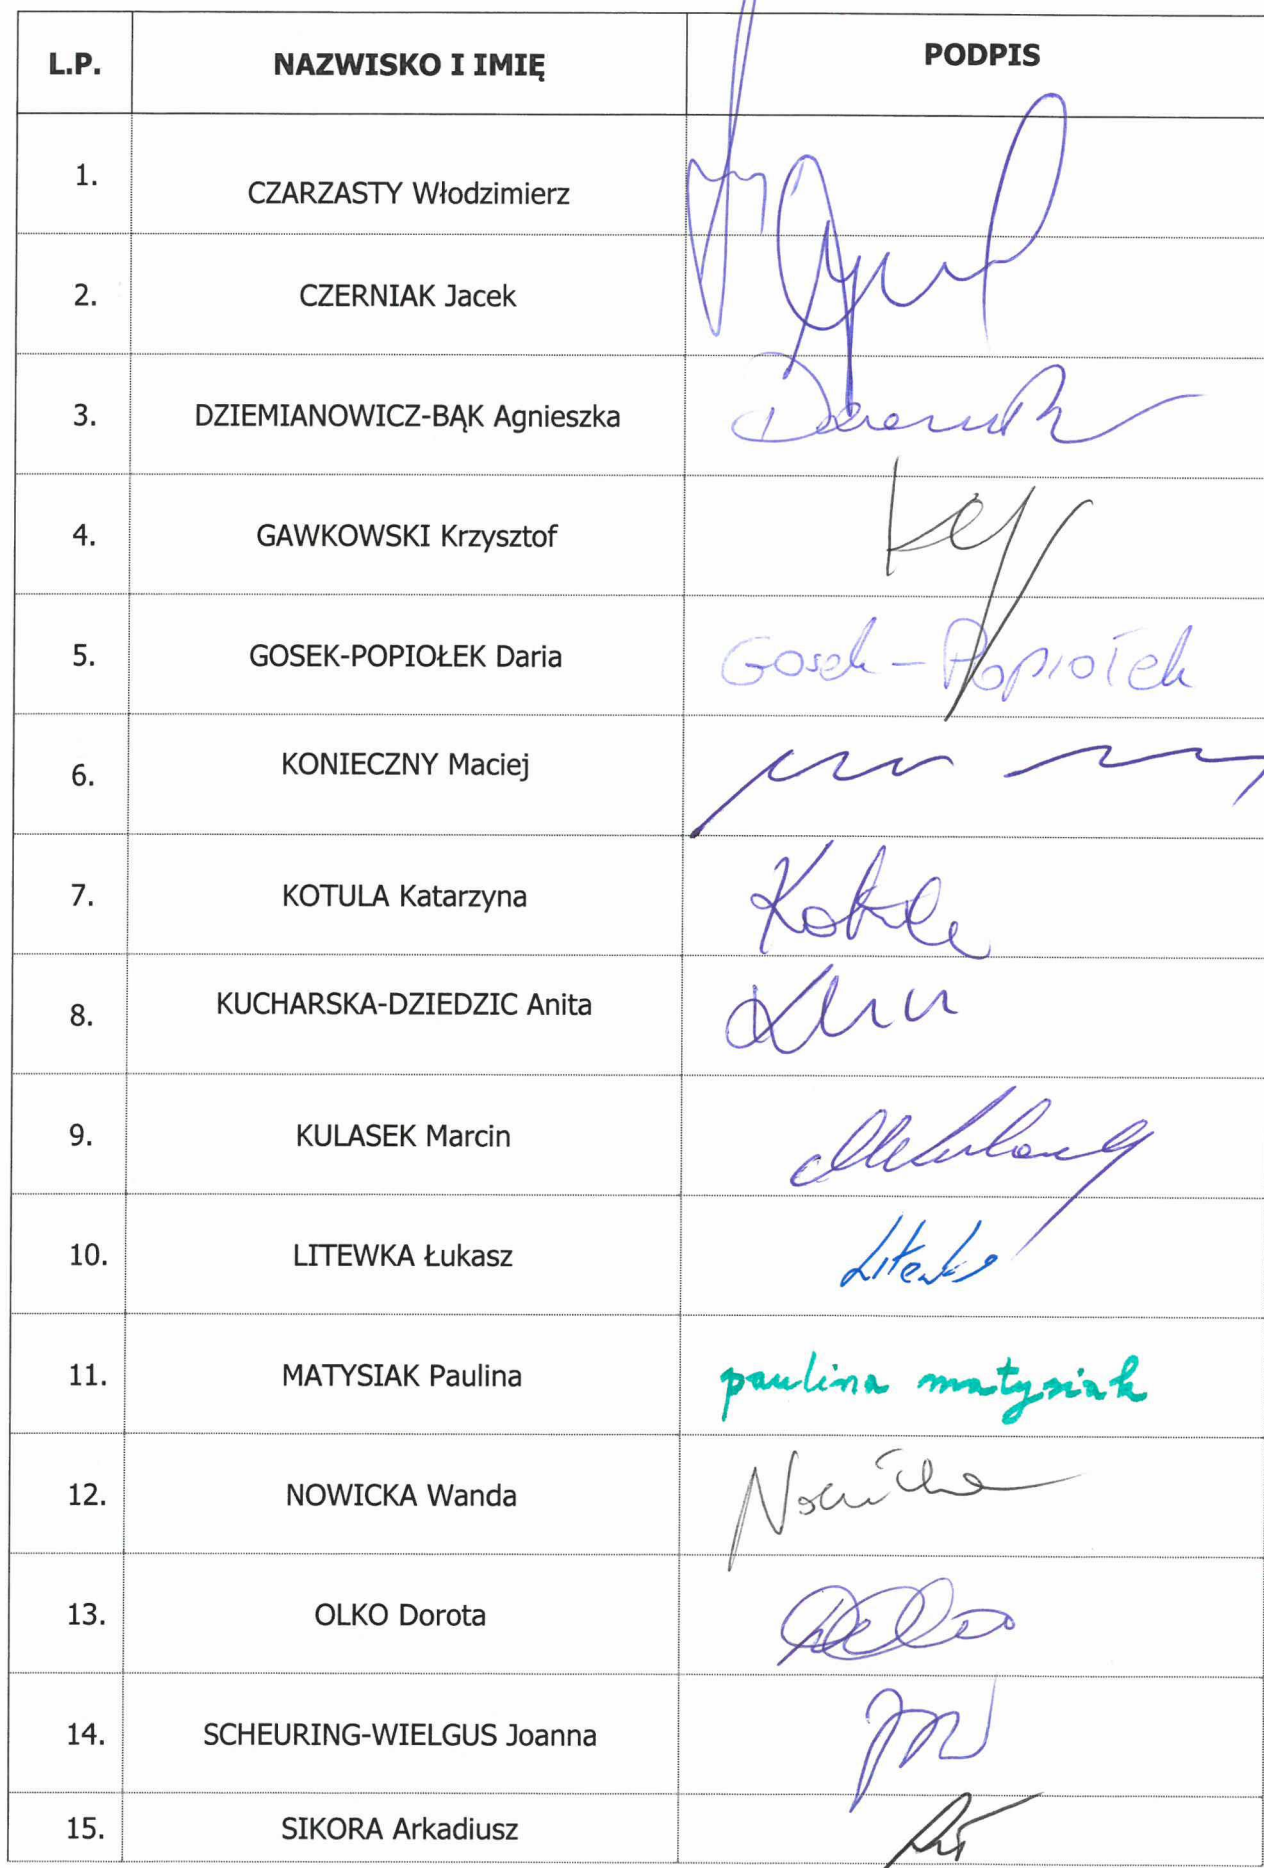 L.P. NAZWISKO I IMIĘ PODPIS
1. CZARZASTY Włodzimierz
2. CZERNIAK Jacek
3. DZIEMIANOWICZ-BĄK Agnieszka
4. GAWKOWSKI Krzysztof
5. GOSEK-POPIOŁEK Daria Gosek-Popiołek
6. KONIECZNY Maciej
7. KOTULA Katarzyna Kotula
8. KUCHARSKA-DZIEDZIC Anita
9. KULASEK Marcin
10. LITEWKA Łukasz Litewka
11. MATYSIAK Paulina paulina matysiak
12. NOWICKA Wanda Nowicka
13. OLKO Dorota
14. SCHEURING-WIELGUS Joanna
15. SIKORA Arkadiusz